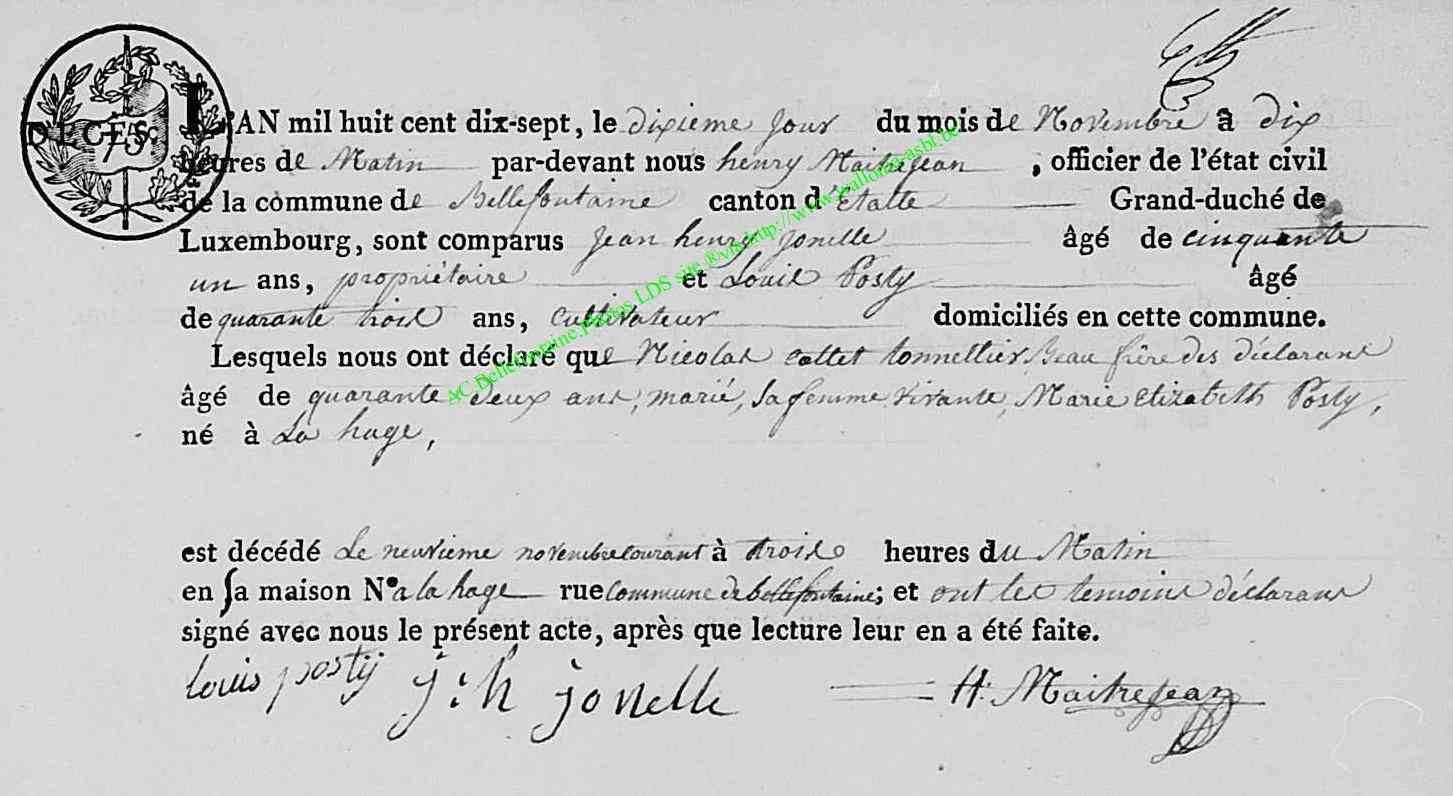 DÉCÈS. 75.
L'AN mil huit cent dix-sept, le dixieme jour du mois de Novembre à dix
heures de Matin par-devant nous henry Maitrejean, officier de l'état civil
de la commune de Bellefontaine canton d'Etalle Grand-duché de
Luxembourg, sont comparus Jean henry Jonelle âgé de cinquante
un ans, propriétaire et Louis Posty âgé
de quarante trois ans, cultivateur domiciliés en cette commune.
Lesquels nous ont déclaré que Nicolas collet tonnellier, Beau frère des déclarans
âgé de quarante deux ans, marié, sa femme vivante, Marie Elizabeth Posty,
né à La hage,
est décédé Le neuvieme novembre courant à trois heures du Matin
en sa maison N° a la hage rue Commune de bellefontaine; et ont les temoins déclarans
signé avec nous le présent acte, après que lecture leur en a été faite.
louis postij j:h jonelle H. Maitrejean
AC Bellefontaine. Photos LDS site